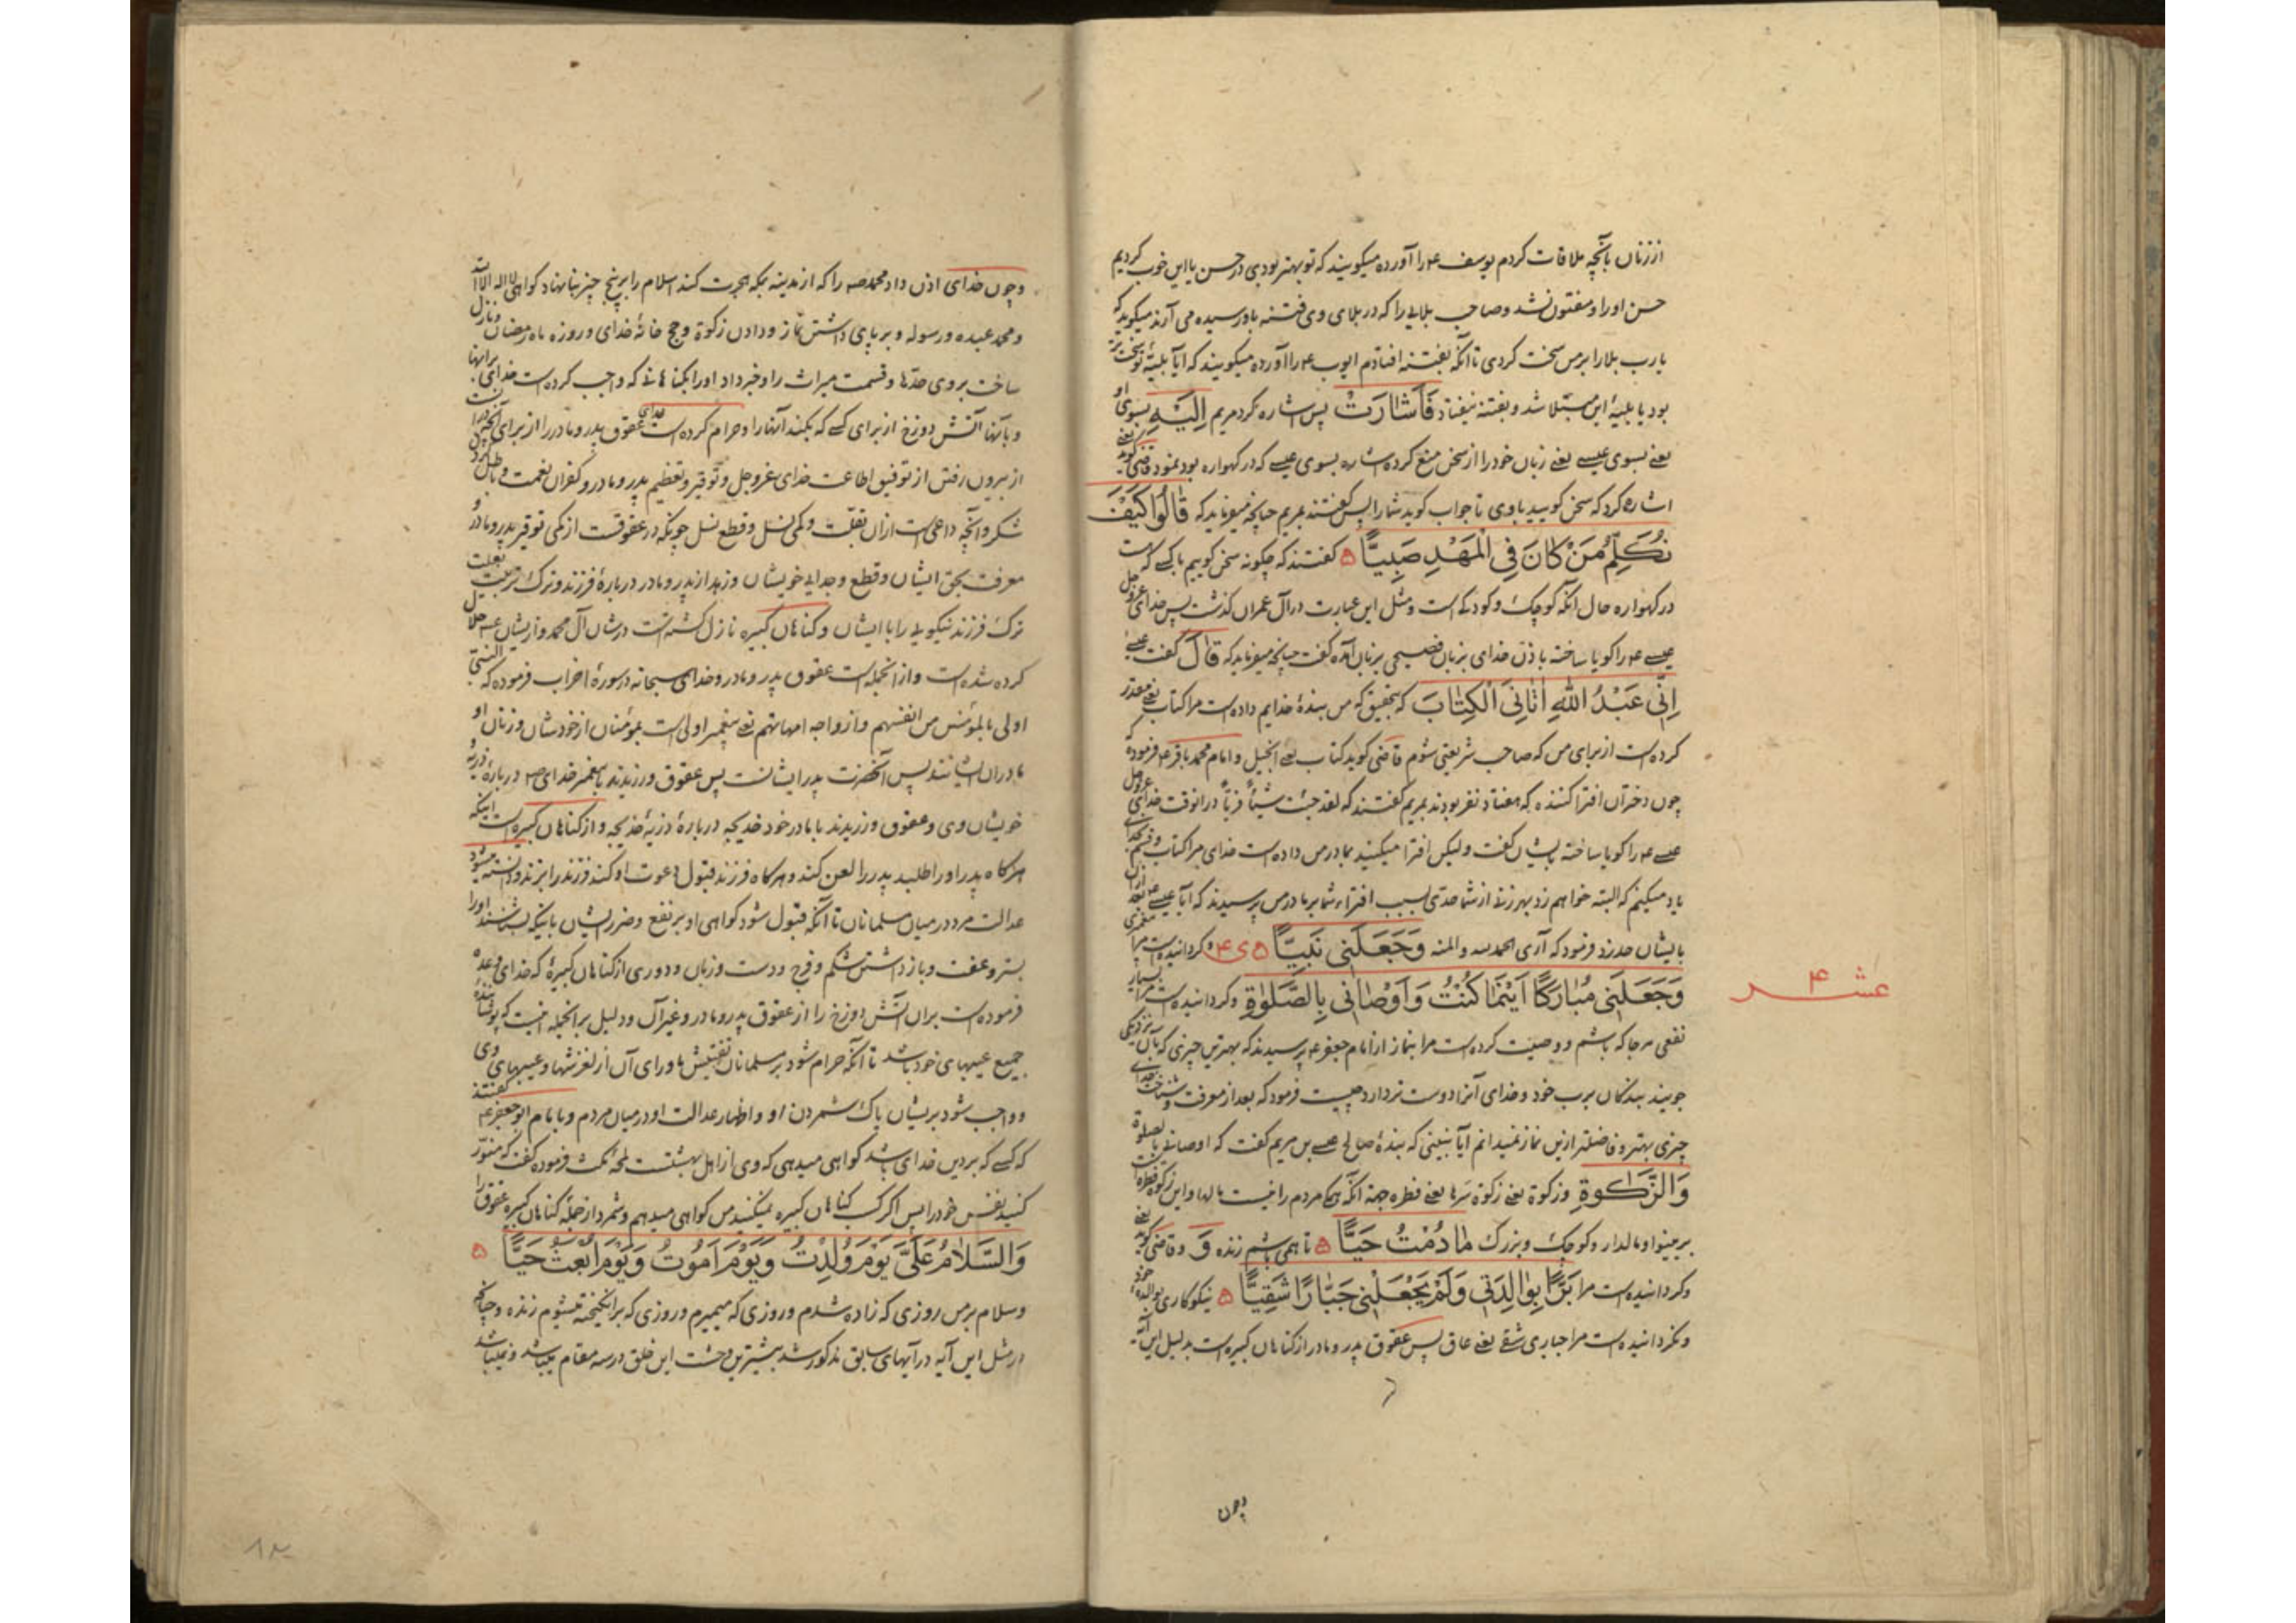 از زنان بآنچه ملاقات کردم یوسف ع را آورده میگویند که تو بهتر بودی در حسن یا این خوب کردیم
حسن او را و مفتون نشد و صاحب بلایی را که در بلای وی فتنه باو رسیده می آرند میگوید که
یا رب بلا را بر من سخت کردی تا آنکه بفتنه افتادم ایوب ع را آورده میگویند که ایا بلیهٔ تو سخت تر
بود یا بلیهٔ این مبتلا شد و بفتنه نیفتاد فَاَشَارَتْ پس اشاره کرد مریم اِلَیْهِ بسوی او
یعنے بسوی عیسے یعنے زبان خود را از سخن منع کرده اشاره بسوی عیسے که در کهواره بود نمود قاضی کوید یعنے
اشاره کرد که سخن کویید با وی تا جواب کوید شما را پس کفتند بمریم چنانچه میفرماید که قَالُوا کَیْفَ
نُکَلِّمُ مَنْ کَانَ فِی الْمَهْدِ صَبِیًّا کفتند که چکونه سخن کوییم با کسے که است
در کهواره حال آنکه کوچک و کودک است و مثل این عبارت در آل عمران کذشت پس خدای عزوجل
عیسے ع را کویا ساخته باذن خدای بزبان فصیحی بزبان آمده کفت چنانچه میفرماید که قَالَ کفت عیسے
اِنِّی عَبْدُ اللّٰهِ اٰتَانِیَ الْکِتَابَ که بتحقیق که من بندهٔ خدایم داده است مرا کتاب یعنے مقدر
کرده است از برای من که صاحب شریعتی شوم قاضی کوید کتاب یعنے انجیل و امام محمد باقر ع فرموده که
چون دختران افترا کننده که هفتاد نفر بودند بمریم کفتند که لقد جئت شیئاً فریّاً در انوقت خدای عزوجل
عیسے ع را کویا ساخته بایشان کفت ولیکن افترا میکنید بمادر من داده است خدای مرا کتاب و قسم بخدای
یاد میکنم که البته خواهم زد بهر زنے از شما حدّی بسبب افترای شما بر مادر من پرسیدند که آیا عیسے ع بعد ازان
بایشان حد زد فرمود که آری الحمد لله و المنه وَجَعَلَنِی نَبِیًّا و کردانیده است مرا پیغمبری
وَجَعَلَنِی مُبَارَکًا اَیْنَمَا کُنْتُ وَاَوْصَانِی بِالصَّلٰوةِ و کردانیده است مرا بسیار
نفعی هر جا که باشم و وصیت کرده است مرا بنماز از امام جعفر ع پرسیدند که بهترین چیزی که بآن نزدیکی
جویند بندکان برب خود و خدای آنرا دوست تر دارد چیست فرمود که بعد از معرفت و شناخت خدای
چیزی بهتر و فاضلتر ازین نماز نمیدانم آیا نبینی که بندهٔ صالح عیسے بن مریم کفت که اوصانے بالصلوة
وَالزَّکٰوةِ و زکوة یعنے زکوة سرها یعنے فطره جهة آنکه همکی مردم را نیست مالها و این زکوة فطره است
بر بینوا و مالدار و کوچک و بزرک مَا دُمْتُ حَیًّا تا همی باشم زنده وَ و قاضی کوید یعنے
و کردانیده است مرا بَرًّا بِوَالِدَتِی وَلَمْ یَجْعَلْنِی جَبَّارًا شَقِیًّا نیکوکاری بوالدهٔ خود
و نکردانیده است مرا جباری شقے یعنے عاق پس عقوق پدر و مادر از کناهان کبیره است بدلیل این آیه
چون
عشر ۴
و چون خدای اذن داد محمد ص را که از مدینه بمکه هجرت کند اسلام را بر پنج چیز بنا نهاد کواهی لا اله الا الله
و محمد عبده و رسوله و بر پای داشتن نماز و دادن زکوة و حج خانهٔ خدای و روزه ماه رمضان و نازل
ساخت بر وی حدّها و قسمت میراث را و خبر داد او را بکناهانے که واجب کرده است خدای بر انها
و بآنها آتش دوزخ از برای کسے که بکند آنها را و حرام کرده است خدای عقوق پدر و مادر را از برای آنچه در انست
از بیرون رفتن از توفیق اطاعت خدای عزوجل و توقیر و تعظیم پدر و مادر و کفران نعمت و باطل کردن
شکر و آنچه داعی است ازان بقلّت و کمی نسل و قطع نسل چونکه در عقوقست از کمی توقیر پدر و مادر و
معرفت بحق ایشان و قطع و جدایے خویشان و زهد از پدر و مادر در بارهٔ فرزند و ترک تربیت بعلت
ترک فرزند نیکویے را با ایشان و کناهان کبیره نازل کشته است در شان آل محمد و از ایشان
کرده شده است و از انجمله است عقوق پدر و مادر و خدای سبحانه در سورهٔ احزاب فرموده که النبی
اولی بالمؤمنین من انفسهم و ازواجه امهاتهم یعنے پیغمبر اولی است بمؤمنان از خودشان و زنان او
مادران ایشانند پس آنحضرت پدر ایشانست پس عقوق ورزیدند با پیغمبر خدای ص در بارهٔ ذریهٔ
خویشان وی و عقوق ورزیدند با مادر خود خدیجه در بارهٔ ذریهٔ خدیجه و از کناهان کبیره است اینکه
هرکاه پدر او را طلبد پدر را لعن کند و هرکاه فرزند قبول دعوت او کند فرزند را بزند و دانسته میشود
عدالت مرد در میان مسلمانان تا آنکه قبول شود کواهی او بر نفع و ضرر ایشان باینکه بشناسند او را
بستر و عفت و باز داشتن شکم و فرج و دست و زبان و دوری از کناهان کبیرهٔ که خدای وعده
فرموده است بران آتش دوزخ را از عقوق پدر و مادر و غیر آن و دلیل بر انجمله اینست که پوشانندهٔ
جمیع عیبهای خود باشد تا آنکه حرام شود بر مسلمانان تفتیش ماورای آن از لغزشها و عیبهای وی
و واجب شود بریشان پاک شمردن او و اظهار عدالت او در میان مردم و بامام ابو جعفر ع کفتند
که کسے که بر دین خدای باشد کواهی میدهی که وی از اهل بهشتست لمحهٔ مکث فرموده کفت که منوّر
کنید نفس خود را پس اکر کسب کناهان کبیره نمیکنید من کواهی میدهم و شمرد از جملهٔ کناهان کبیره عقوق را
وَالسَّلَامُ عَلَیَّ یَوْمَ وُلِدْتُ وَیَوْمَ اَمُوتُ وَیَوْمَ اُبْعَثُ حَیًّا
و سلام بر من روزی که زاده شدم و روزی که میمیرم و روزی که برانکیخته میشوم زنده و چنانچه
در مثل این آیه در آیهای سابق مذکور شد بیشترین وحشت این خلق در سه مقام میباشد و نمیباشد